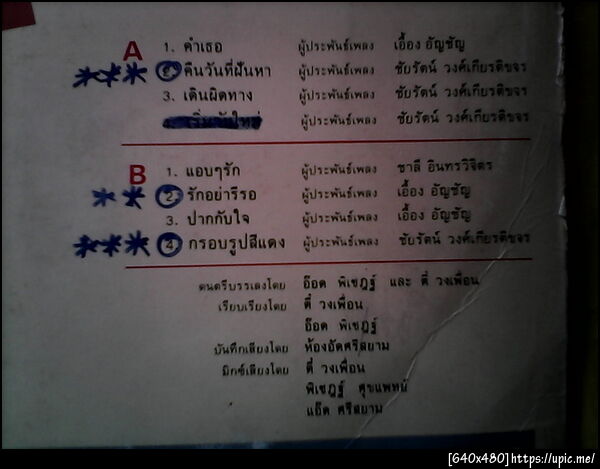 A 1. คำเธอ ผู้ประพันธ์เพลง เอื้อง อัญชัญ
2. คืนวันที่ฝันหา ผู้ประพันธ์เพลง ชัยรัตน์ วงศ์เกียรติขจร
3. เดินผิดทาง ผู้ประพันธ์เพลง ชัยรัตน์ วงศ์เกียรติขจร
4. เริ่มวันใหม่ ผู้ประพันธ์เพลง ชัยรัตน์ วงศ์เกียรติขจร
B 1. แอบๆรัก ผู้ประพันธ์เพลง ชาลี อินทรวิจิตร
2. รักอย่ารีรอ ผู้ประพันธ์เพลง เอื้อง อัญชัญ
3. ปากกับใจ ผู้ประพันธ์เพลง เอื้อง อัญชัญ
4. กรอบรูปสีแดง ผู้ประพันธ์เพลง ชัยรัตน์ วงศ์เกียรติขจร
ดนตรีบรรเลงโดย อ๊อด พิเชฎฐ์ และ ตี๋ วงเพื่อน
เรียบเรียงโดย ตี๋ วงเพื่อน
อ๊อด พิเชฎฐ์
บันทึกเสียงโดย ห้องอัดศรีสยาม
มิกซ์เสียงโดย ตี๋ วงเพื่อน
พิเชฎฐ์ ศุขแพทย์
แอ๊ด ศรีสยาม
[640x480]https://upic.me/